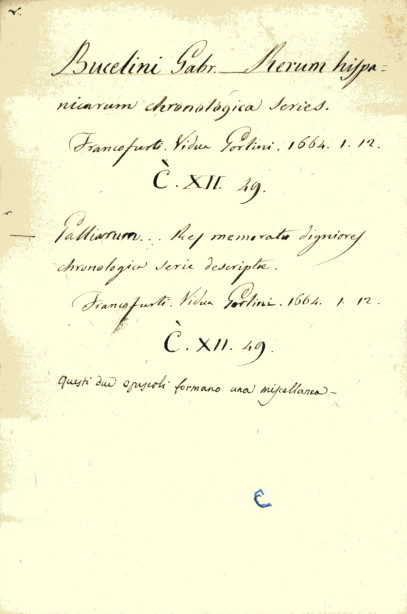 Bucelini Gabr. — Rerum hispa=
nicarum chronologica series.
Francofurti. Vidua Gorlini. 1664. 1. 12.
Č. XII. 49.
Galliarum... Res memoratu digniores
chronologica serie descriptæ.
Francofurti. Vidua Gorlini. 1664. 1. 12.
Č. XII. 49.
questi due opuscoli formano una miscellanea –